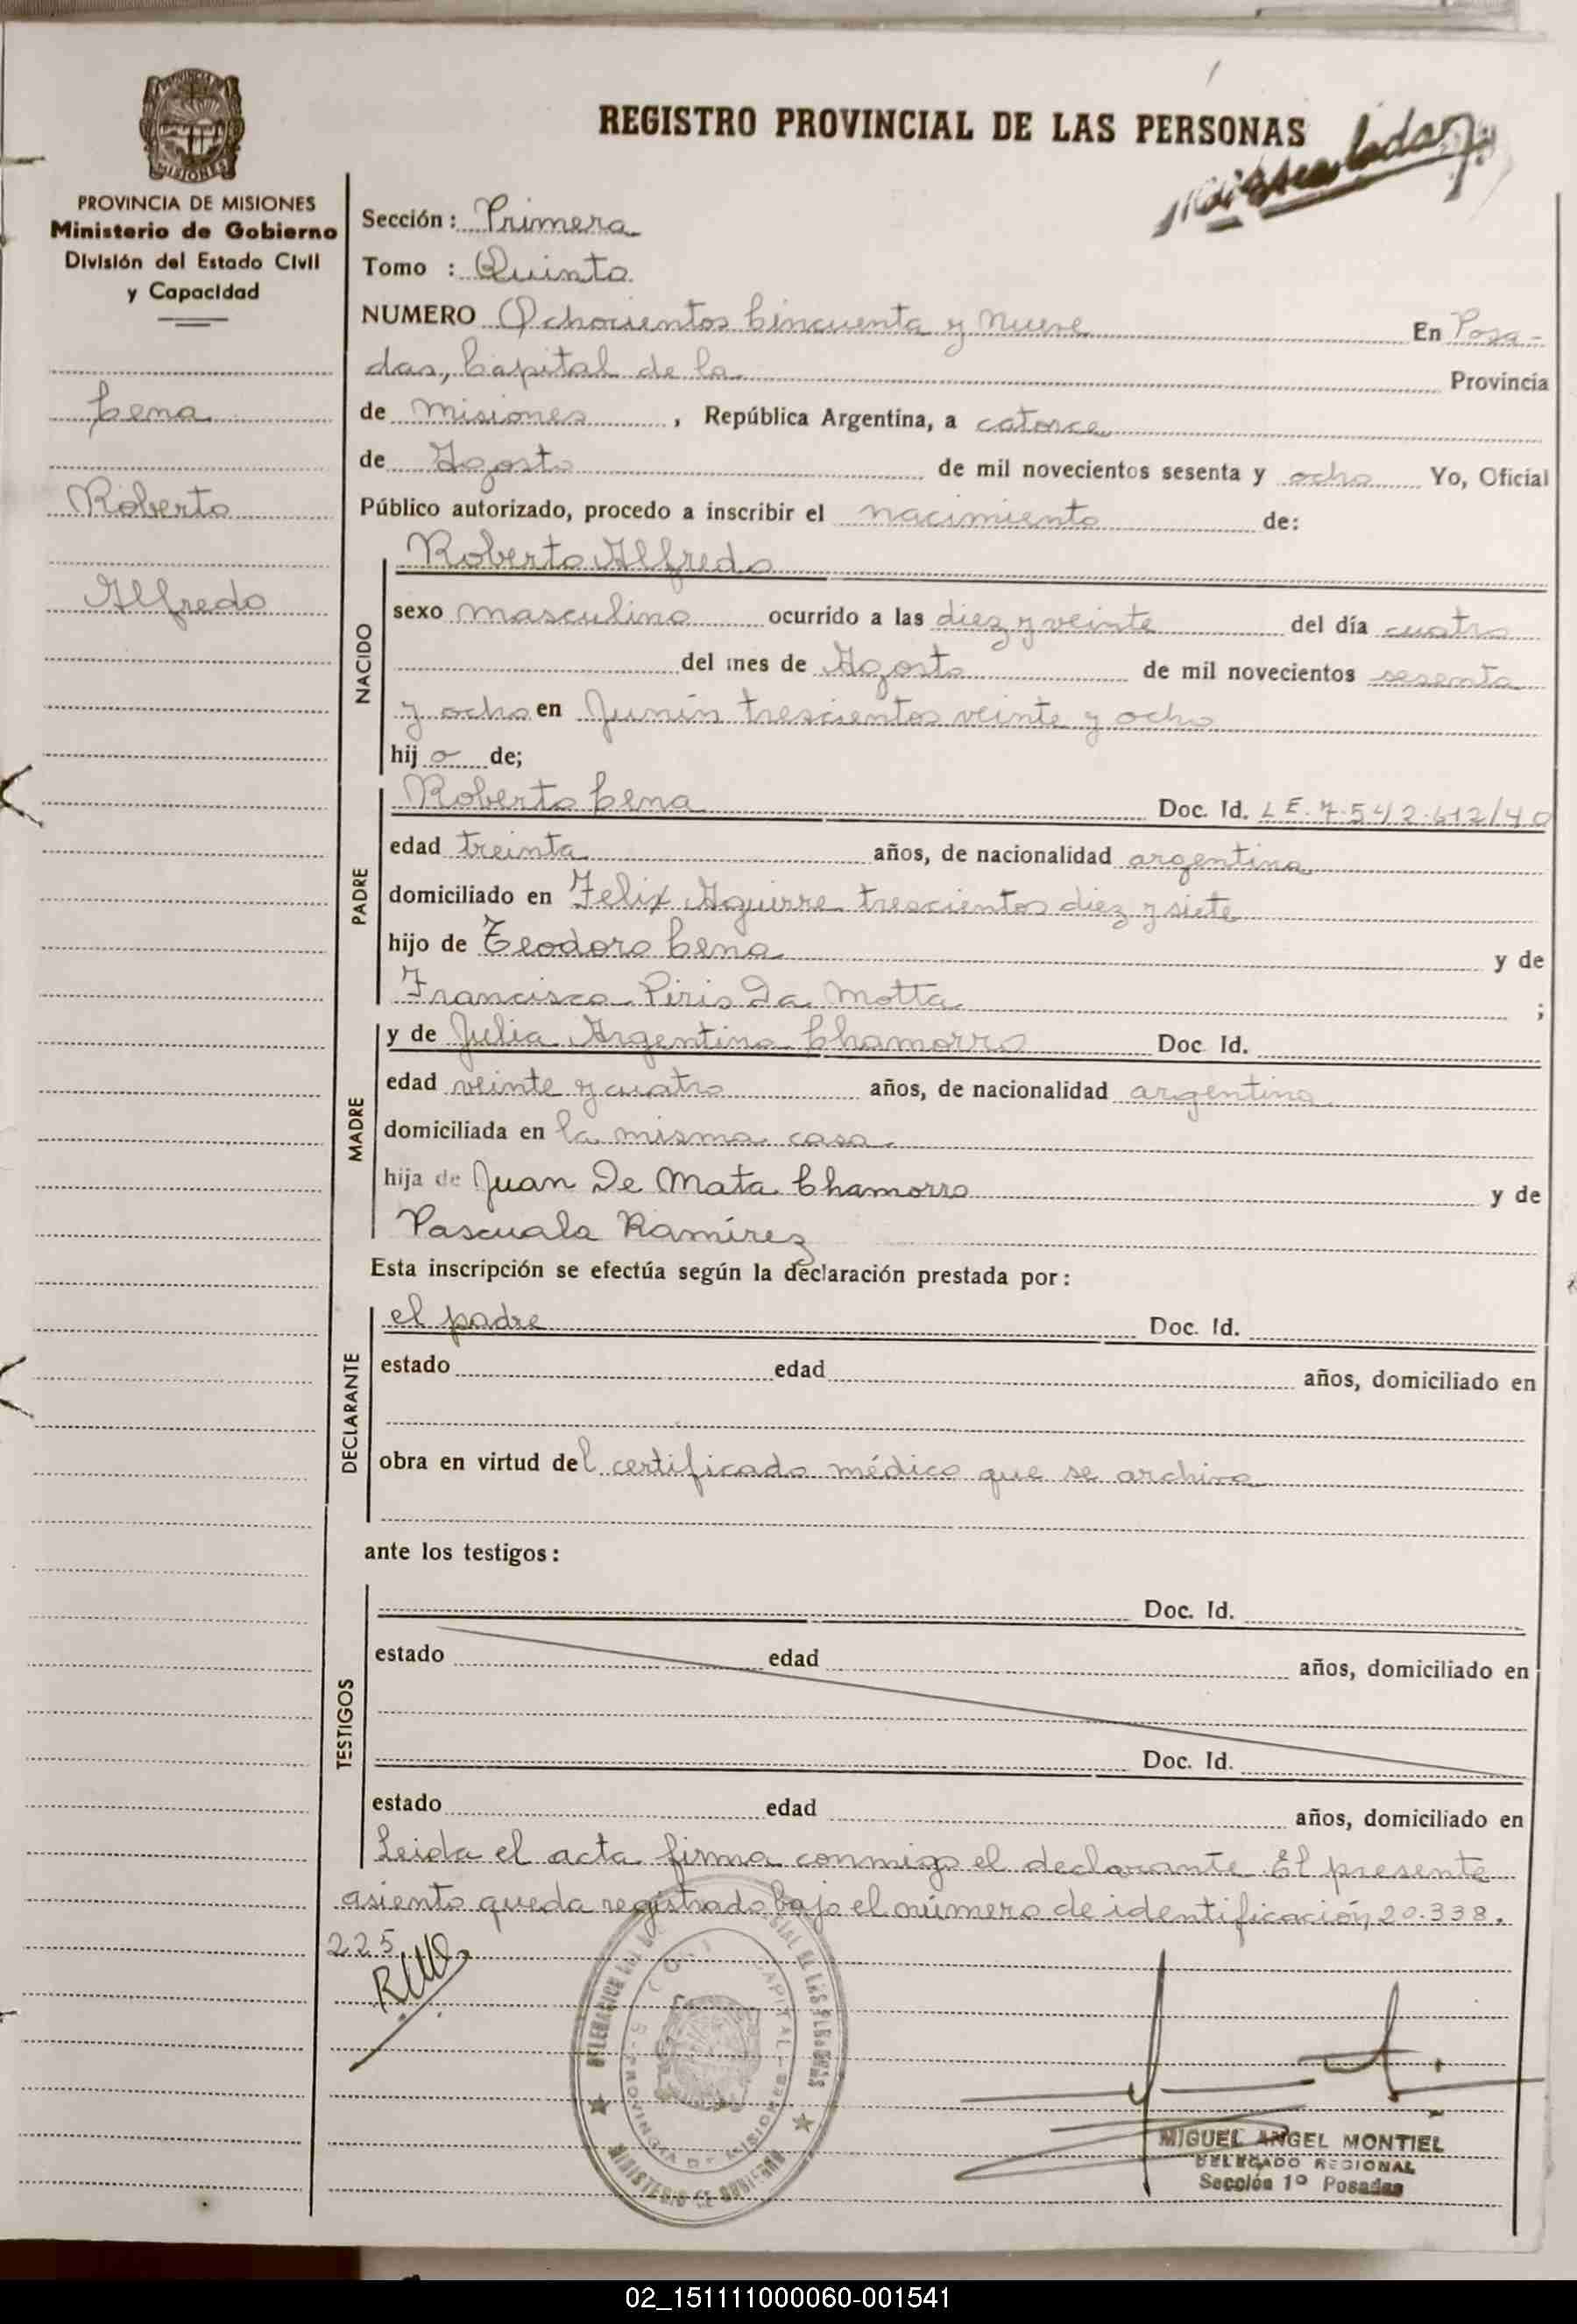 REGISTRO PROVINCIAL DE LAS PERSONAS
MISIONES
PROVINCIA DE MISIONES
Ministerio de Gobierno
División del Estado Civil
y Capacidad
Cena
Roberto
Alfredo
Sección: Primera
Tomo : Quinto
NUMERO Ochocientos Cincuenta y Nueve En Posa-
das, Capital de la Provincia
de Misiones, República Argentina, a catorce
de Agosto de mil novecientos sesenta y ocho Yo, Oficial
Público autorizado, procedo a inscribir el nacimiento de:
NACIDO
Roberto Alfredo
sexo masculino ocurrido a las diez y veinte del día cuatro
del mes de Agosto de mil novecientos sesenta
y ocho en Junín trescientos veinte y ocho
hij o de;
PADRE
Roberto Cena Doc. Id. L E. 7.542.612/40
edad treinta años, de nacionalidad argentina
domiciliado en Felix Aguirre trescientos diez y siete
hijo de Teodoro Cena y de
Francisca Piris Da Motta ;
MADRE
y de Julia Argentina Chamorro Doc Id.
edad veinte y cuatro años, de nacionalidad argentina
domiciliada en la misma casa
hija de Juan De Mata Chamorro y de
Pascuala Ramírez
Esta inscripción se efectúa según la declaración prestada por:
DECLARANTE
el padre Doc. Id.
estado edad años, domiciliado en
obra en virtud del certificado médico que se archiva
ante los testigos:
TESTIGOS
Doc. Id.
estado edad años, domiciliado en
Doc. Id.
estado edad años, domiciliado en
Leida el acta firma conmigo el declarante. El presente
asiento queda registrado bajo el número de identificación 20.338.
225
MINISTERIO DE GOBIERNO
PROVINCIA DE MISIONES
CAPITAL
MIGUEL ANGEL MONTIEL
DELEGADO REGIONAL
Sección 1º Posadas
02_151111000060-001541